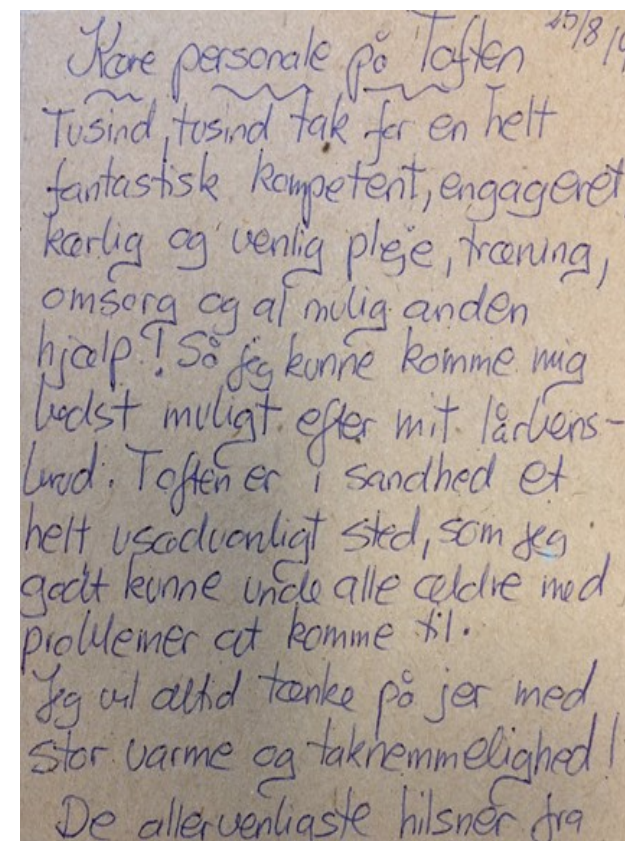 25/8
Kære personale på Toften
Tusind, tusind tak for en helt
fantastisk kompetent, engageret,
kærlig og venlig pleje, træning,
omsorg og al mulig anden
hjælp! Så jeg kunne komme mig
bedst muligt efter mit lårbens-
brud. Toften er i sandhed et
helt usædvanligt sted, som jeg
godt kunne unde alle ældre med
problemer at komme til.
Jeg vil altid tænke på jer med
stor varme og taknemmelighed!
De allervenligste hilsner fra